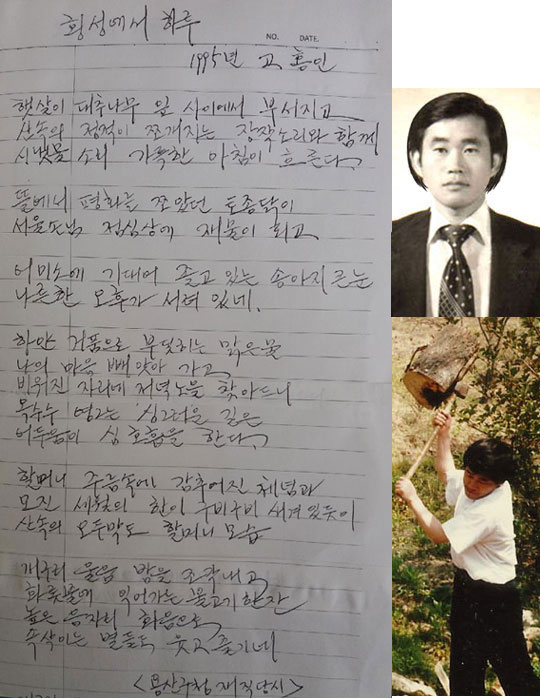 횡성에서 하루
NO. DATE.
1995년 고홍인
햇살이 대추나무 잎 사이에서 부서지고
산속의 정적이 쪼개지는 장작소리와 함께
시냇물 소리 가득한 아침이 흐른다.
뜰에서 평화를 쪼았던 토종닭이
서울손님 점심상에 재물이 되고
어미소에 기대어 졸고 있는 송아지 큰눈
나른한 오후가 서려 있네.
하얀 거품으로 부딪히는 맑은물
나의 마음 빼앗아 가고
비워진 자리에 저녁노을 찾아드니
옥수수 영그는 싱그러운 깊은
어두움이 심호흡을 한다.
할머니 주름속에 감추어진 체념과
모진 세월의 한이 구비구비 새겨 있듯이
산속의 오두막도 할머니 모습
개구리 울음 밤을 조각내고
화롯불에 익어가는 물고기 한잔
높은 음자리 화음으로
속삭이는 별들도 웃고 즐기네
<용산구청 재직당시>